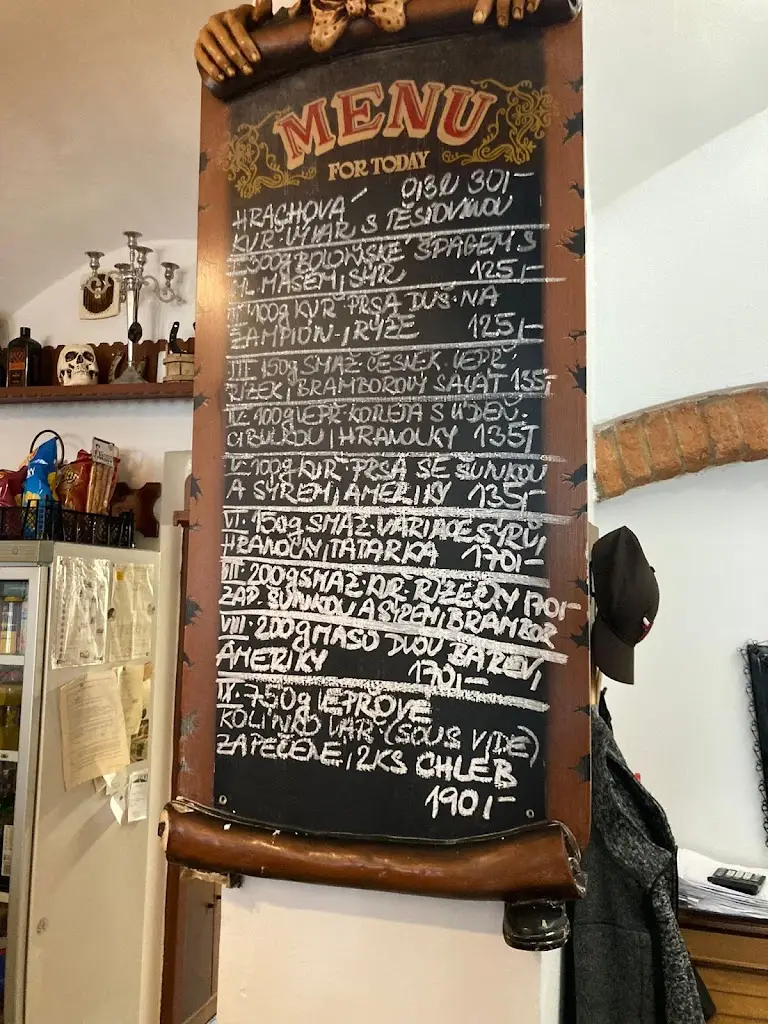 MENU
FOR TODAY
HRACHOVÁ 0,3l 30,-
KUŘ. VÝVAR S TĚSTOVINOU
I. 300g BOLOŇSKÉ ŠPAGETY S
ML. MASEM, SÝR 125,-
II. 100g KUŘ PRSA DUŠ. NA
ŽAMPION., RÝŽE 125,-
III. 150g SMAŽ. ČESNEK. VEPŘ.
ŘÍZEK, BRAMBOROVÝ SALÁT 135,-
IV. 100g VEPŘ. KOTLETA S UZEN.
CIBULKOU, HRANOLKY 135,-
V. 100g KUŘ. PRSA SE ŠUNKOU
A SÝREM, AMERIKY 135,-
VI. 150g SMAŽ. VARIACE SÝRŮ,
HRANOLKY, TATARKA 170,-
VII. 200g SMAŽ. KUŘ. ŘÍZEČKY 170,-
ZAP. ŠUNKOU A SÝREM, BRAMBOR
VIII. 200g MASO DVOU BAREV,
AMERIKY 170,-
IX. 750g VEPŘOVÉ
KOLÍNKO VAŘ. (SOUS VIDE)
ZAPEČENÉ, 2KS CHLÉB
190,-